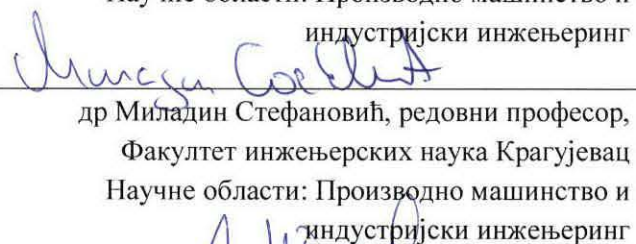 Научне области: Производно машинство и
индустријски инжењеринг
др Миладин Стефановић, редовни професор,
Факултет инжењерских наука Крагујевац
Научне области: Производно машинство и
индустријски инжењеринг